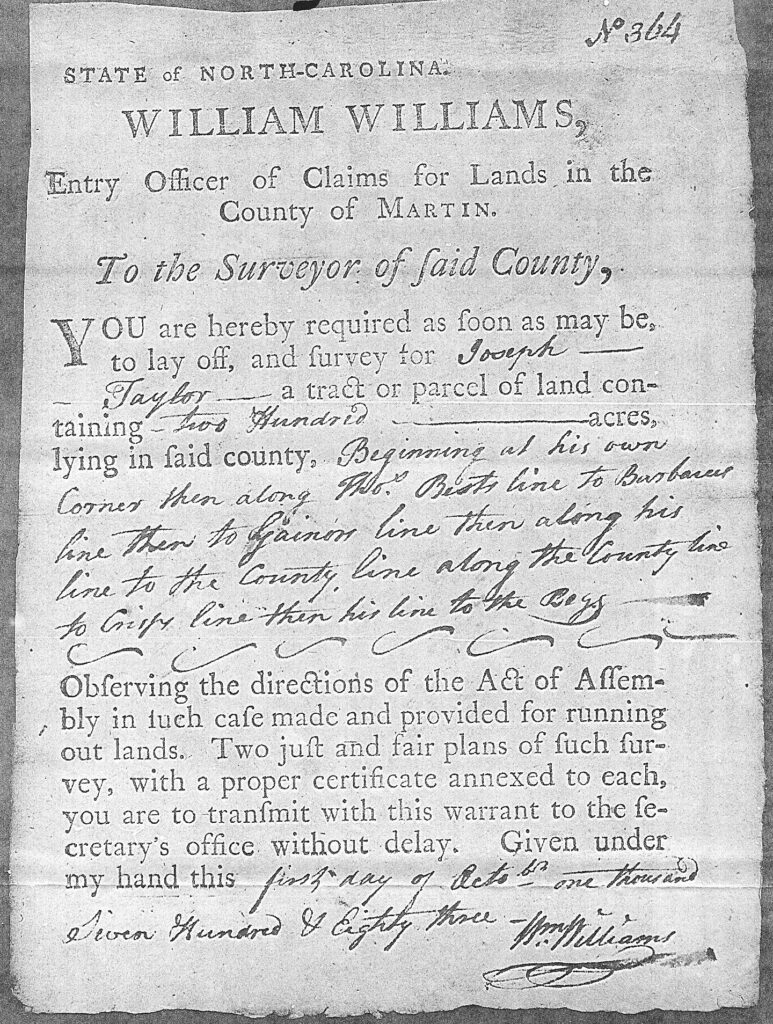 No 364
STATE of NORTH-CAROLINA.
WILLIAM WILLIAMS,
Entry Officer of Claims for Lands in the
County of MARTIN.
To the Surveyor of ſaid County,
YOU are hereby required as ſoon as may be,
to lay off, and ſurvey for Joseph —
— Taylor — a tract or parcel of land con-
taining – two Hundred — acres,
lying in ſaid county, Beginning at his own
Corner then along Thos. Bests line to Burbaces
line then to Gainors line then along his
line to the County line along the County line
to Crisps line then his line to the Beg
Obſerving the directions of the Act of Aſſem-
bly in ſuch caſe made and provided for running
out lands. Two juſt and fair plans of ſuch ſur-
vey, with a proper certificate annexed to each,
you are to tranſmit with this warrant to the ſe-
cretary's office without delay. Given under
my hand this first day of Octobr one thousand
Seven Hundred & Eighty three – Wm. Williams